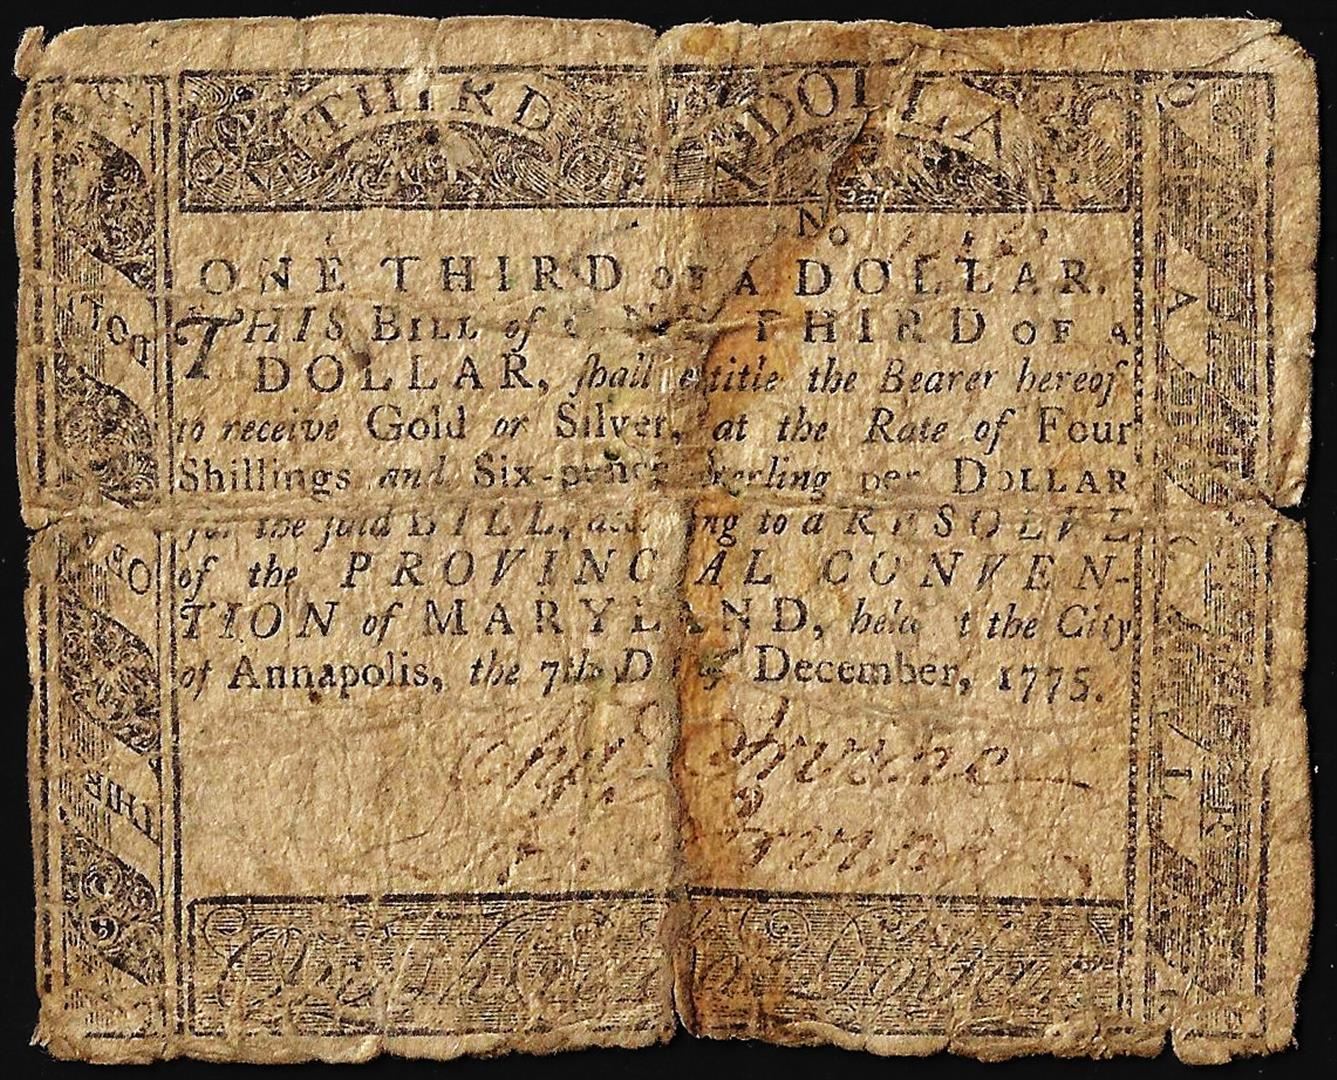 THIRD DOLLA
No
ONE THIRD OF A DOLLAR.
THIS BILL of ONE THIRD OF A
DOLLAR, ſhall entitle the Bearer hereof
to receive Gold or Silver, at the Rate of Four
Shillings and Six-pence Sterling per DOLLAR
for the ſaid BILL, according to a RESOLVE
of the PROVINCIAL CONVEN-
TION of MARYLAND, held at the City
of Annapolis, the 7th Day of December, 1775.
DOL
OF
THIR
A